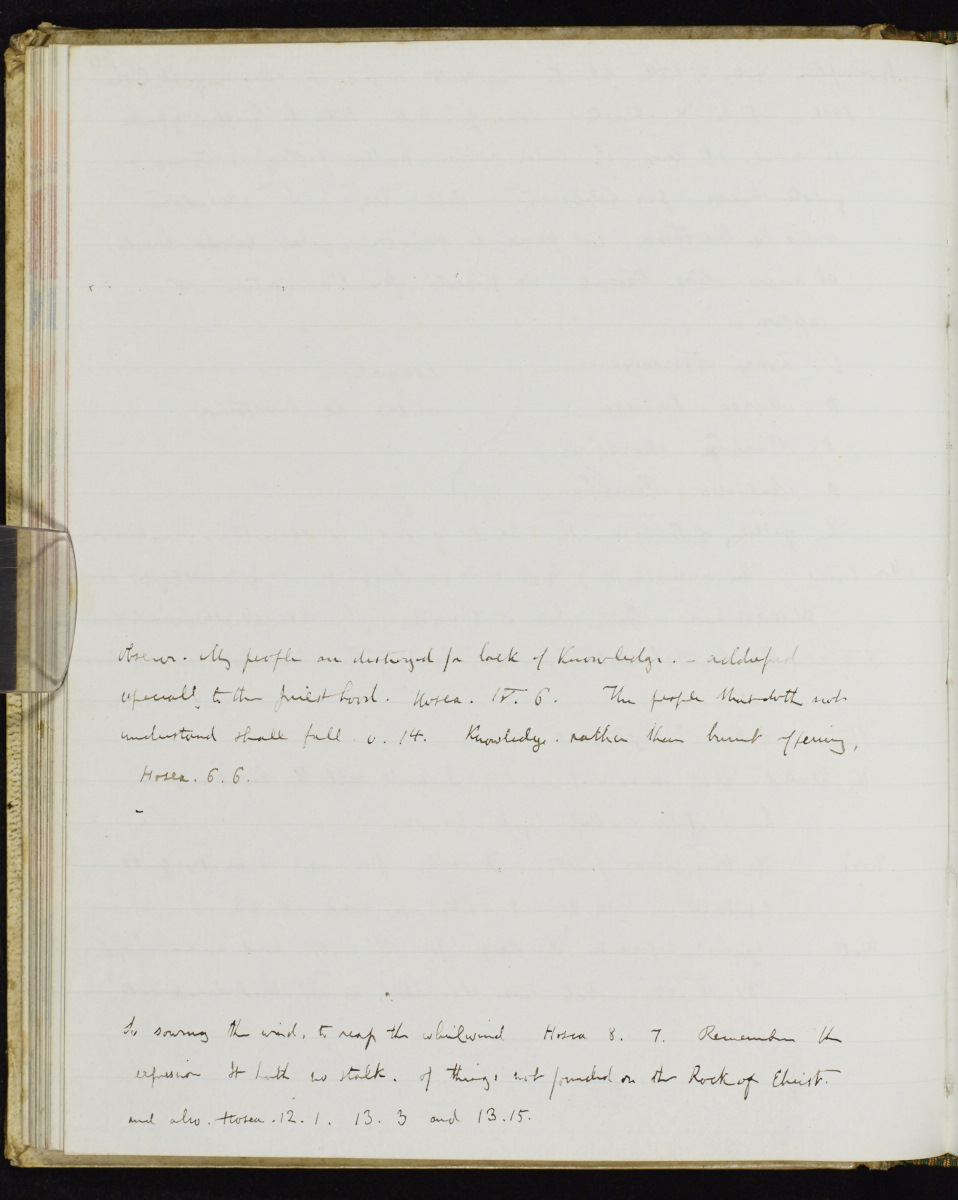 Observe. My people are destroyed for lack of Knowledge. – addressed
especially to the priesthood. Hosea. IV. 6. The people that doth not
understand shall fall. v. 14. Knowledge. rather than burnt offering,
Hosea. 6. 6.
–
So sowing the wind, to reap the whirlwind Hosea 8. 7. Remember the
expression It hath no stalk. of things not founded on the Rock of Christ.
and also. Hosea. 12. 1. 13. 3 and 13. 15.